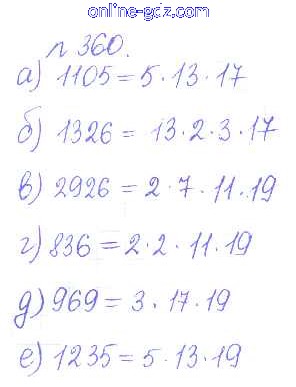 online-gdz.com
№ 360.
а) 1105 = 5 · 13 · 17
б) 1326 = 13 · 2 · 3 · 17
в) 2926 = 2 · 7 · 11 · 19
г) 836 = 2 · 2 · 11 · 19
д) 969 = 3 · 17 · 19
е) 1235 = 5 · 13 · 19